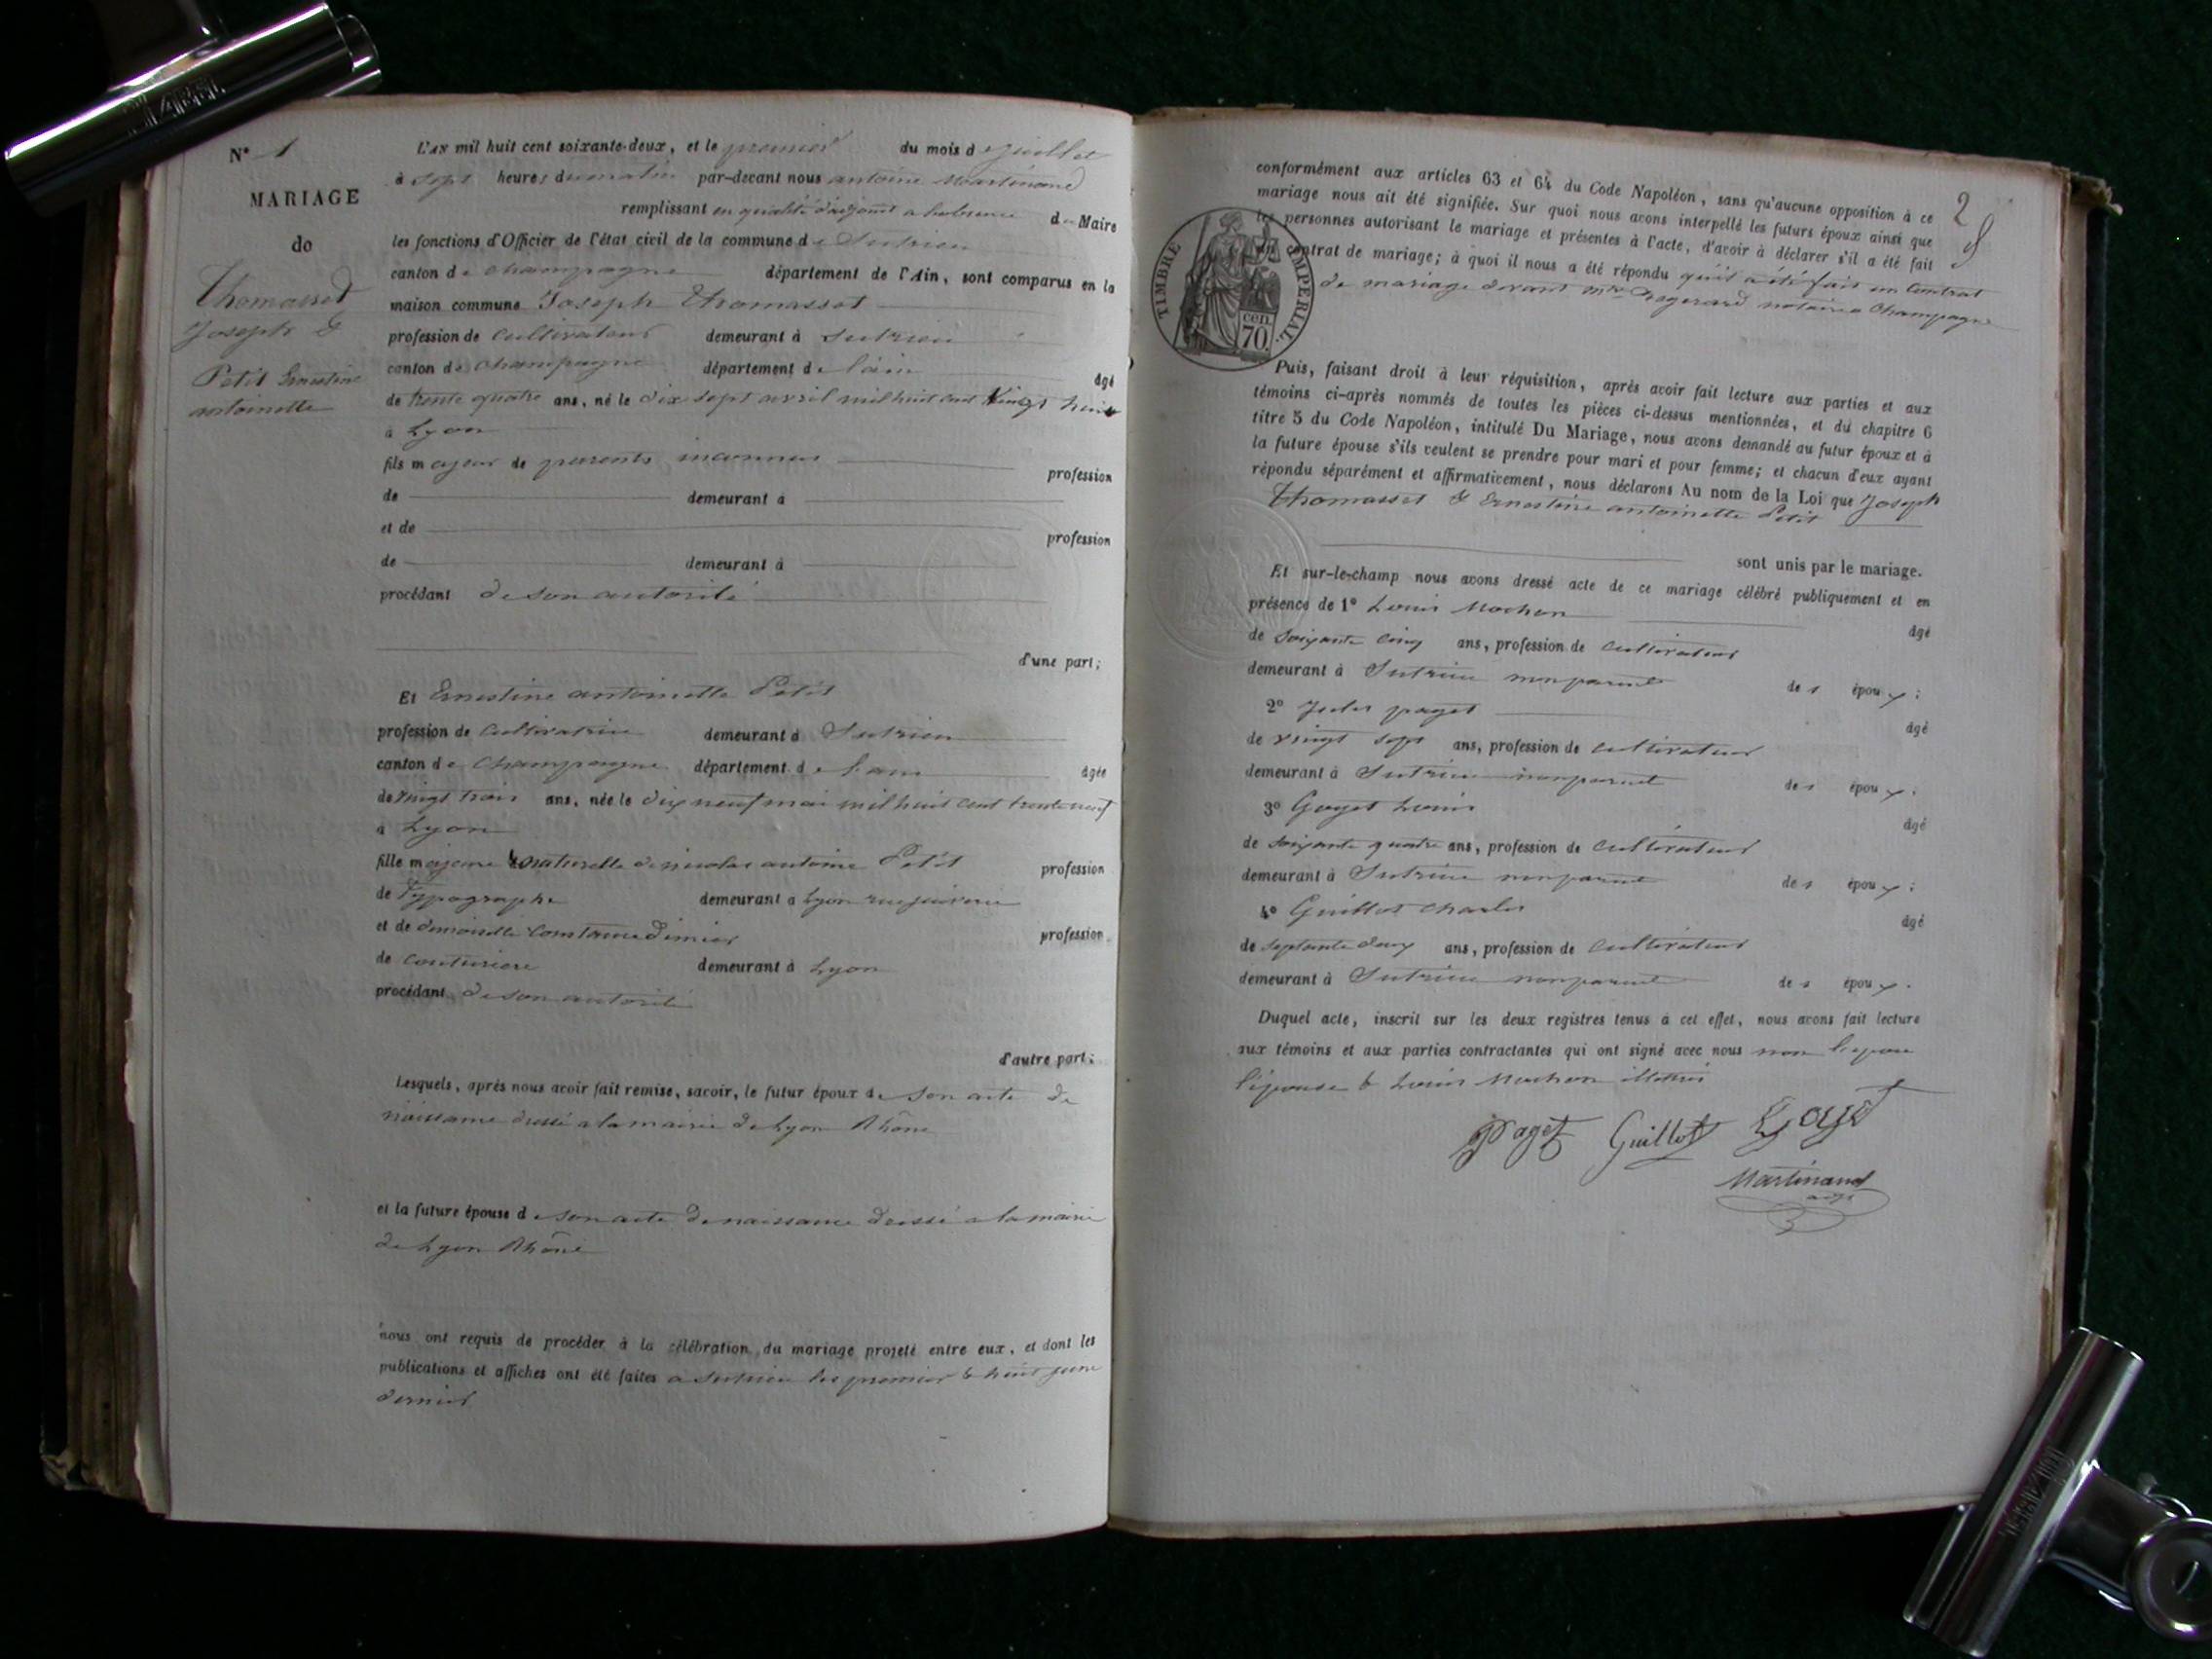 N° 1
MARIAGE
de
Thomasset
Joseph &
Petit Ernestine
antoinette
L'AN mil huit cent soixante-deux, et le premier du mois de juillet
à sept heures du matin par-devant nous antoine Martinand
remplissant en qualité d'adjoint a labsence du Maire
les fonctions d'Officier de l'état civil de la commune de Sutrieu
canton de champagne département de l'Ain, sont comparus en la
maison commune Joseph Thomasset
profession de cultivateur demeurant à Sutrieu
canton de champagne département de lain âgé
de trente quatre ans, né le dix sept avril mil huit cent vingt huit
à Lyon
fils majeur de parents inconnus profession
de demeurant à
et de profession
de demeurant à
procédant de son autorité
d'une part;
Et Ernestine antoinette Petit
profession de cultivatrice demeurant à Sutrieu
canton de champagne département de lain âgée
de vingt trois ans, née le dix neuf mai mil huit cent trente neuf
à Lyon
fille majeure naturelle de nicolas antoine Petit profession
de Typographe demeurant a Lyon rue juiverie
et de demoiselle Constance Dimier profession
de couturiere demeurant à Lyon
procédant de son autorité
d'autre part;
Lesquels, après nous avoir fait remise, savoir, le futur époux de son acte de
naissance dressé a la mairie de Lyon Rhône
et la future épouse de son acte de naissance dressé a la mairie
de Lyon Rhône
nous ont requis de procéder à la célébration du mariage projeté entre eux, et dont les
publications et affiches ont été faites a Sutrieu les premier & huit juin
dernier
2
conformément aux articles 63 et 64 du Code Napoléon, sans qu'aucune opposition à ce
mariage nous ait été signifiée. Sur quoi nous avons interpellé les futurs époux ainsi que
les personnes autorisant le mariage et présentes à l'acte, d'avoir à déclarer s'il a été fait
un contrat de mariage; à quoi il nous a été répondu qu'il a été fait un Contrat
de mariage devant mtre notaire a Champagne
TIMBRE IMPERIAL.
70 cen.
Puis, faisant droit à leur réquisition, après avoir fait lecture aux parties et aux
témoins ci-après nommés de toutes les pièces ci-dessus mentionnées, et du chapitre 6
titre 5 du Code Napoléon, intitulé Du Mariage, nous avons demandé au futur époux et à
la future épouse s'ils veulent se prendre pour mari et pour femme; et chacun d'eux ayant
répondu séparément et affirmativement, nous déclarons Au nom de la Loi que Joseph
Thomasset & Ernestine antoinette Petit
sont unis par le mariage.
Et sur-le-champ nous avons dressé acte de ce mariage célébré publiquement et en
présence de 1° Louis Mochon âgé
de soixante cinq ans, profession de cultivateur
demeurant à Sutrieu non parent des époux;
2° Jules paget âgé
de vingt sept ans, profession de cultivateur
demeurant à Sutrieu non parent des époux.
3° Goyet Louis âgé
de soixante quatre ans, profession de cultivateur
demeurant à Sutrieu non parent des époux;
4° Guillot charles âgé
de septante deux ans, profession de cultivateur
demeurant à Sutrieu non parent des époux.
Duquel acte, inscrit sur les deux registres tenus à cet effet, nous avons fait lecture
aux témoins et aux parties contractantes qui ont signé avec nous non lepoux
l'épouse & Louis Mochon illettrés
Paget Guillot Goyet
Martinand
adjt